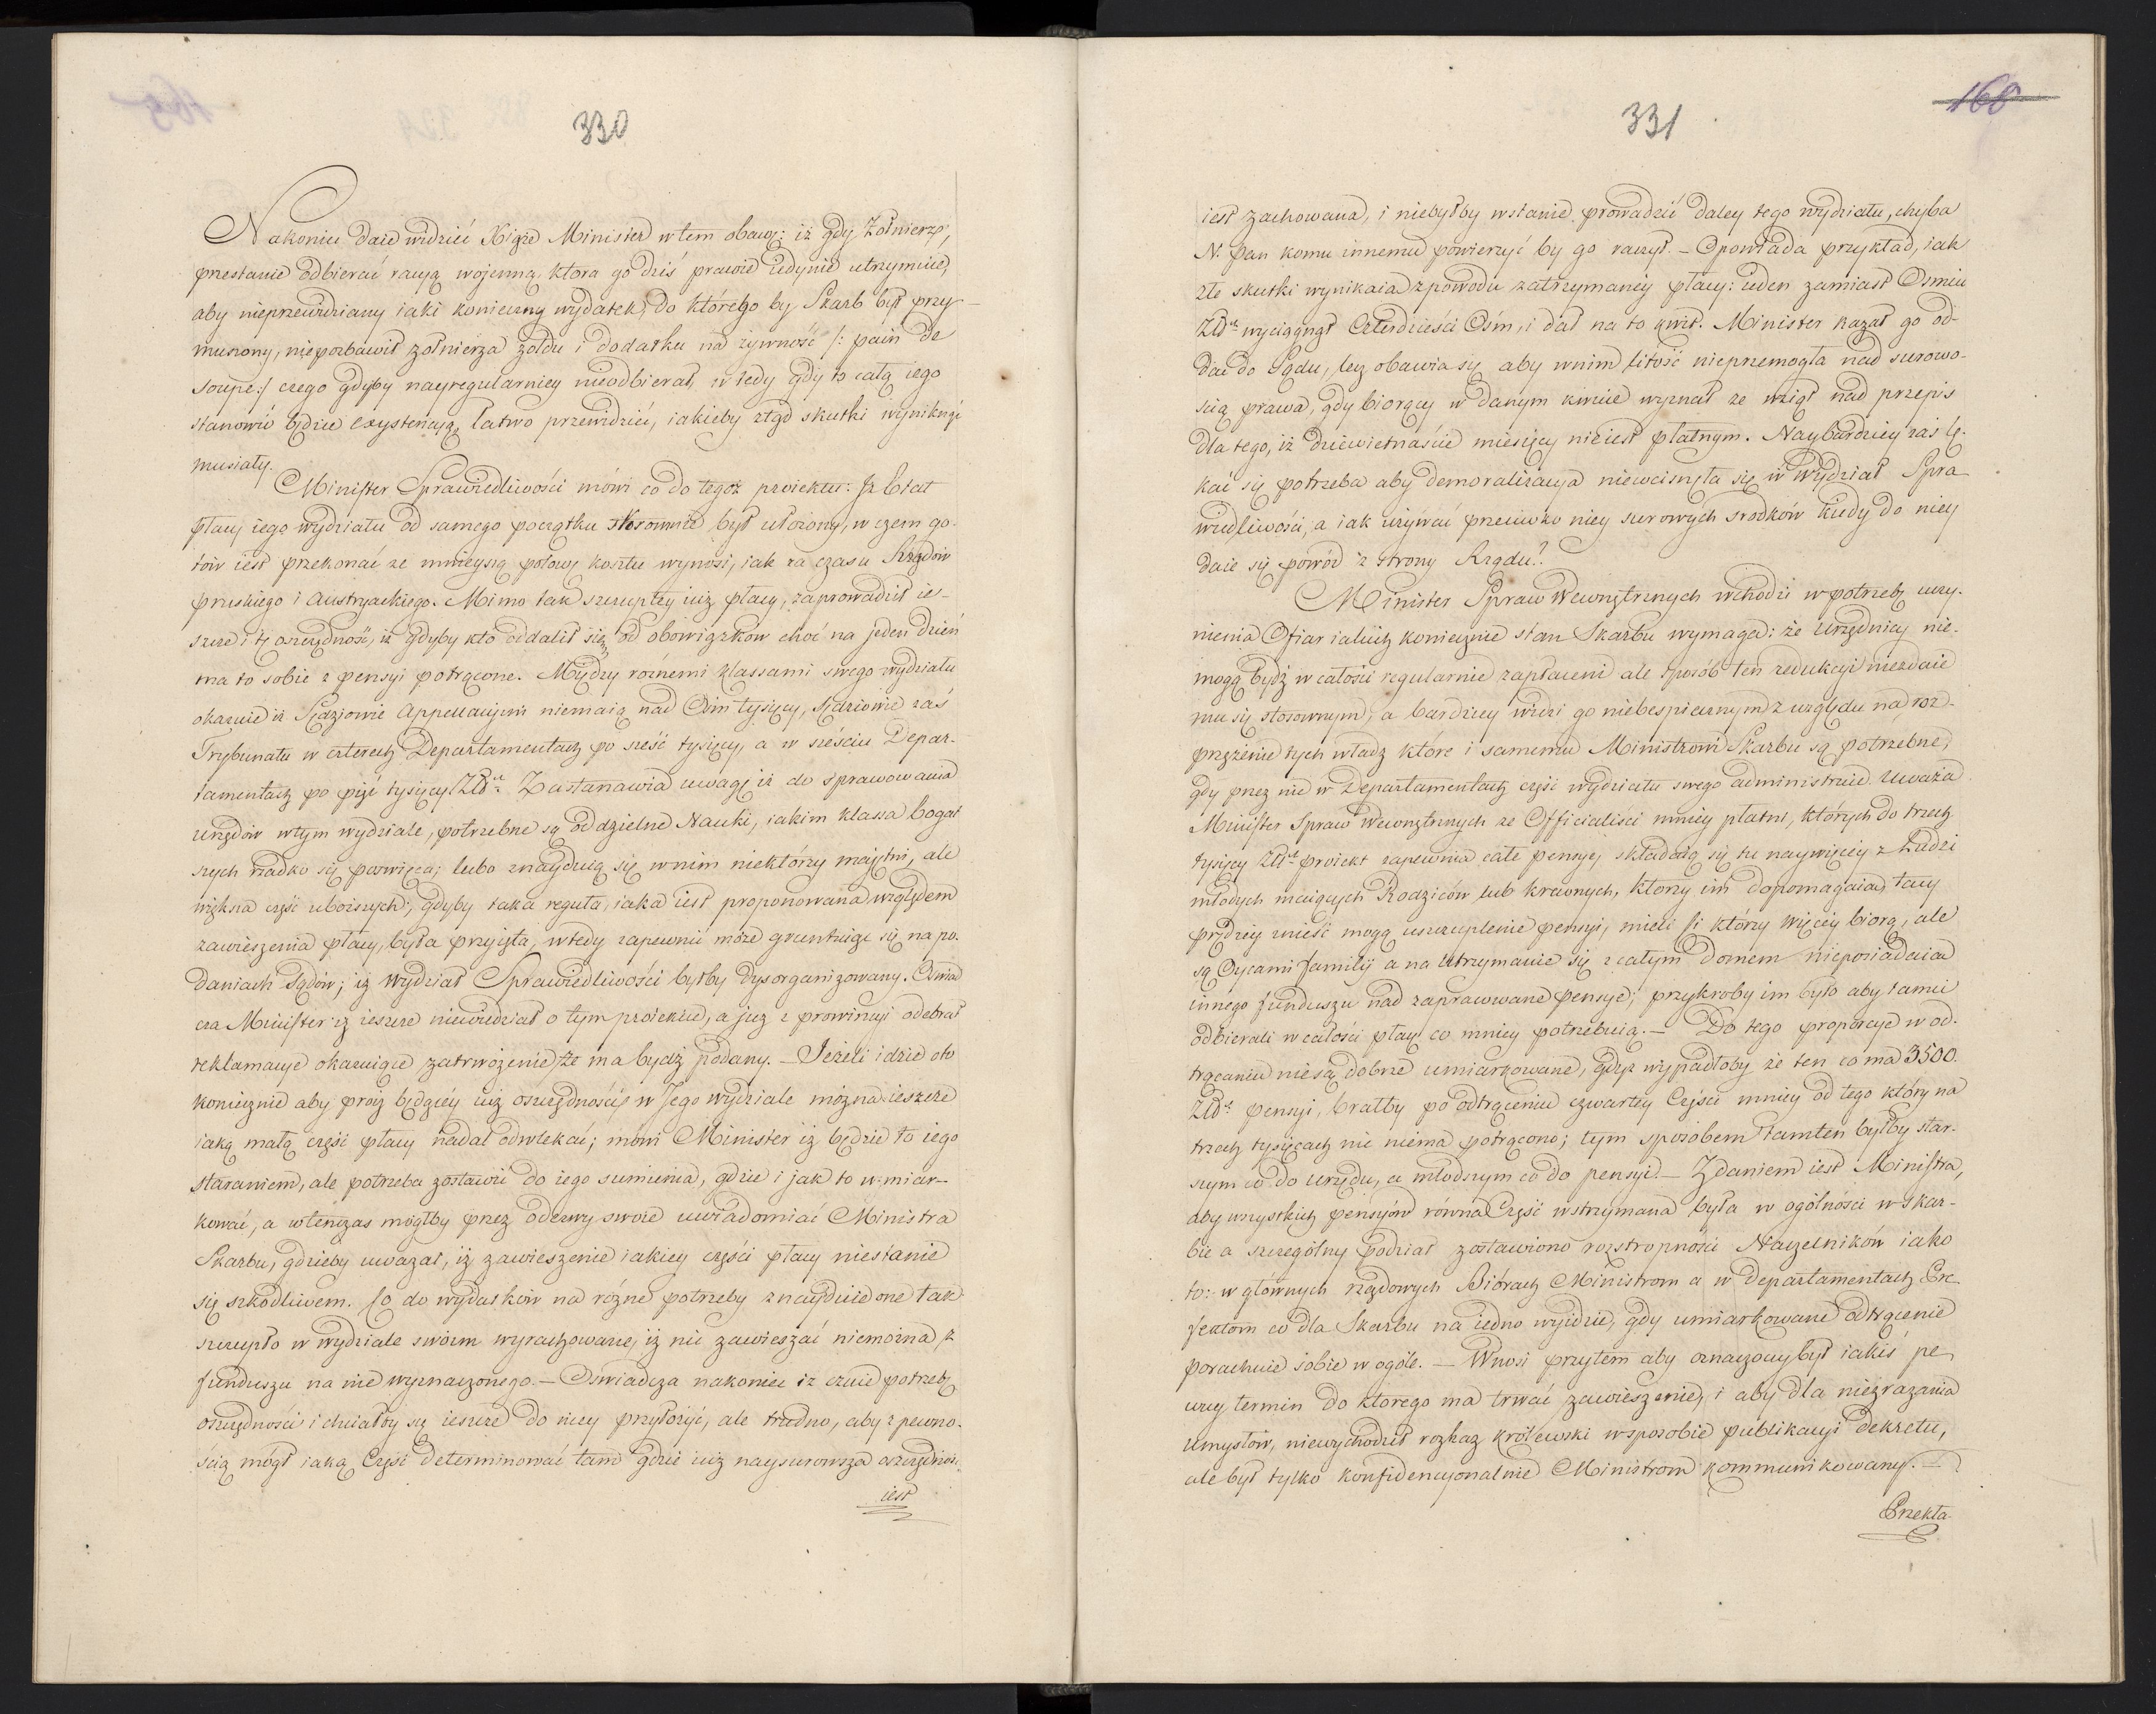 330
Nakoniec daie widzieć Xiąże Minister w tem obawę: iż gdy Żołnierz,
przestanie odbierać racyą wojenną, ktora go dziś prawie iedynie utrzymuie,
aby nieprzewidziany iaki konieczny wydatek, do którego by Skarb był przy
muszony, niepozbawił żołnierza żołdu i dodatku na żywność /: pain de
soupe:/ czego gdyby nayregularniey nieodbierał, w tedy gdy to całą iego
stanowić będzie exystencyą, łatwo przewidzieć, iakieby ztąd skutki wyniknąć
musiały.
Minister Sprawiedliwości mówi co do tegoż proiektu: Iż Etat
płacy iego wydziału od samego początku skromnie był ułożony, w czem go-
tów iest przekonać że mnieyszą połowę kosztu wynosi, iak za czasu Rządów
pruskiego i Austryackiego. Mimo tak szczupłey iuż płacy, zaprowadził ie-
szcze i tę oszczędność, iż gdyby kto oddalił się od obowiązków choć na jeden dzień
ma to sobie z pensyi potrącone. Między roźnemi klassami swego wydziału
okazuie iż Sędziowie Appellacyini niemaią nad Ośm tysięcy, Sędziowie zaś
Trybunału w czterech Departamentach po sześć tysięcy, a w sześciu Depar-
tamentach po pięć tysięcy Złł. Zastanawia uwagę iż do sprawowania
urzędów w tym wydziale, potrzebne są oddzielne Nauki, iakim klassa bogat
szych rzadko się poswięca; lubo znayduią się w nim niektórzy majętni, ale
większa część uboższych; gdyby taka reguła, iaka iest proponowana względem
zawieszenia płacy, była przyięta, wtedy zapewnić może gruntuiąc się na po-
daniach Sądów; iż wydział Sprawiedliwości byłby dysorganizowany. Oświad
cza Minister iż ieszcze niewiedział o tym proiekcie, a już z prowincyi odebrał
reklamacye okazuiące zatrwożenie, że ma bydź podany. — Jeżeli idzie oto
koniecznie aby procz będącéy iuż oszczędności w Jego wydziale można ieszcze
iaką małą część płacy nadal odwlekać; mówi Minister iż będzie to iego
staraniem, ale potrzeba zostawić do iego sumienia, gdzie i jak to umiar-
kować, a wtenczas mógłby przez odezwy swoie uwiadomiać Ministra
Skarbu, gdzieby uważał, iż zawieszenie iakiey części płacy niestanie
się szkodliwem. Co do wydatków na różne potrzeby znayduie one tak
szczupło w wydziale swoim wyrachowane, iż nic zawieszać niemożna z
funduszu na nie wyznaczonego. — Oświadcza nakoniec iż czuie potrzebę
oszczędności i chciałby się ieszcze do niey przyłożyć, ale trudno, aby z pewno-
ścią mógł iaką Część determinować tam gdzie iuż naysurowsza oszczędność
iest
331
168
iest zachowana, i niebyłby wstanie prowadzić daley tego wydziału, chyba
N. Pan komu innemu powierzyć by go raczył. — Opowiada przykład, iak
złe skutki wynikaia z powodu zatrzymaney płacy: ieden zamiast Ośmiu
Złł. wyciągnął Czterdzieści Ośm, i dał na to kwit. Minister kazał go od-
dać do Sądu, lecz obawia się aby w nim litość nieprzemogła nad surowo-
scią prawa, gdy biorący w danym kwicie wyznał że wziął nad przepis
dla tego, iż dziewietnaście miesięcy nieiest płatnym. Naybardziey zaś lę-
kać się potrzeba aby demoralizacya niewcisnęła się w wydział Spra
wiedliwości, a iak używać przeciwko niey surowych srodków kiedy do niey
daie się powód z strony Rządu?
Minister Spraw Wewnętrznych wchodzi w potrzebę uczy-
nienia Ofiar iakich koniecznie stan Skarbu wymaga: że Urzędnicy nie-
mogą bydź w całości regularnie zapłaceni ale sposób ten redukcyi niezdaie
mu się stosownym, a bardziey widzi go niebespiecznym z względu na roz-
przężenie tych władz które i samemu Ministrowi Skarbu są potrzebne,
gdy przez nie w Departamentach część wydziału swego administruie. Uważa
Minister Spraw Wewnętrznych że Officialiści mniey płatni, których do trzech
tysięcy Złł. proiekt zapewnia całe pensye, składaią się tu naywięcey z Ludzi
młodych maiących Rodziców lub krewnych, ktorzy im dopomagaia, tacy
prędzey znieść mogą uszczuplenie pensyi, niżeli ci którzy więcéy biorą, ale
są Oycami familij a na utrzymanie się z całym domem nieposiadaia
innego funduszu nad zapracowane pensye; przykroby im było aby tamci
odbierali w całości płacę co mniey potrzebuią. — Do tego proporcye w od-
trąceniu niesą dobrze umiarkowane, gdyż wypadłoby że ten co ma 3500.
Złł. pensyi, brałby po odtrąceniu czwartey Części mniey od tego który na
trzech tysiącach nic niema potrącono; tym sposobem tamten byłby star-
szym co do urzędu, a młodszym co do pensyi. — Zdaniem iest Ministra,
aby wszystkich pensyów równa Część wstrzymana była w ogólności w Skar-
bie a szczególny podział zostawiono rozstropności Naczelników iako
to: w głównych rządowych Biórach Ministrom a w Departamentach Pre-
fektom co dla Skarbu na iedno wyidzie, gdy umiarkowane odtrącenie
porachuie sobie w ogóle. — Wnosi przytem aby oznaczony był iakiś pe
wny termin do ktorego ma trwać zawieszenie, i aby dla niezrażania
umysłów, niewychodził rozkaz królewski w sposobie publikacyi Dekretu,
ale był tylko konfidencyonalnie Ministrom kommunikowany. —
Przekła-